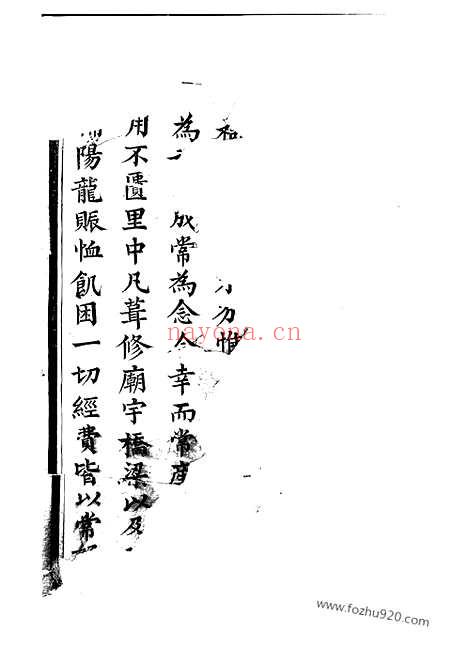 和 勿惟
為 成常為念今幸而常產
用不匱里中凡葺修廟宇橋梁以及
陽龍賑恤飢困一切經費皆以常
nayona.cn
www.fozhu920.com